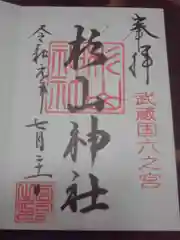 奉拝
武蔵国六之宮
杉山神社
令和元年
七月二十一日